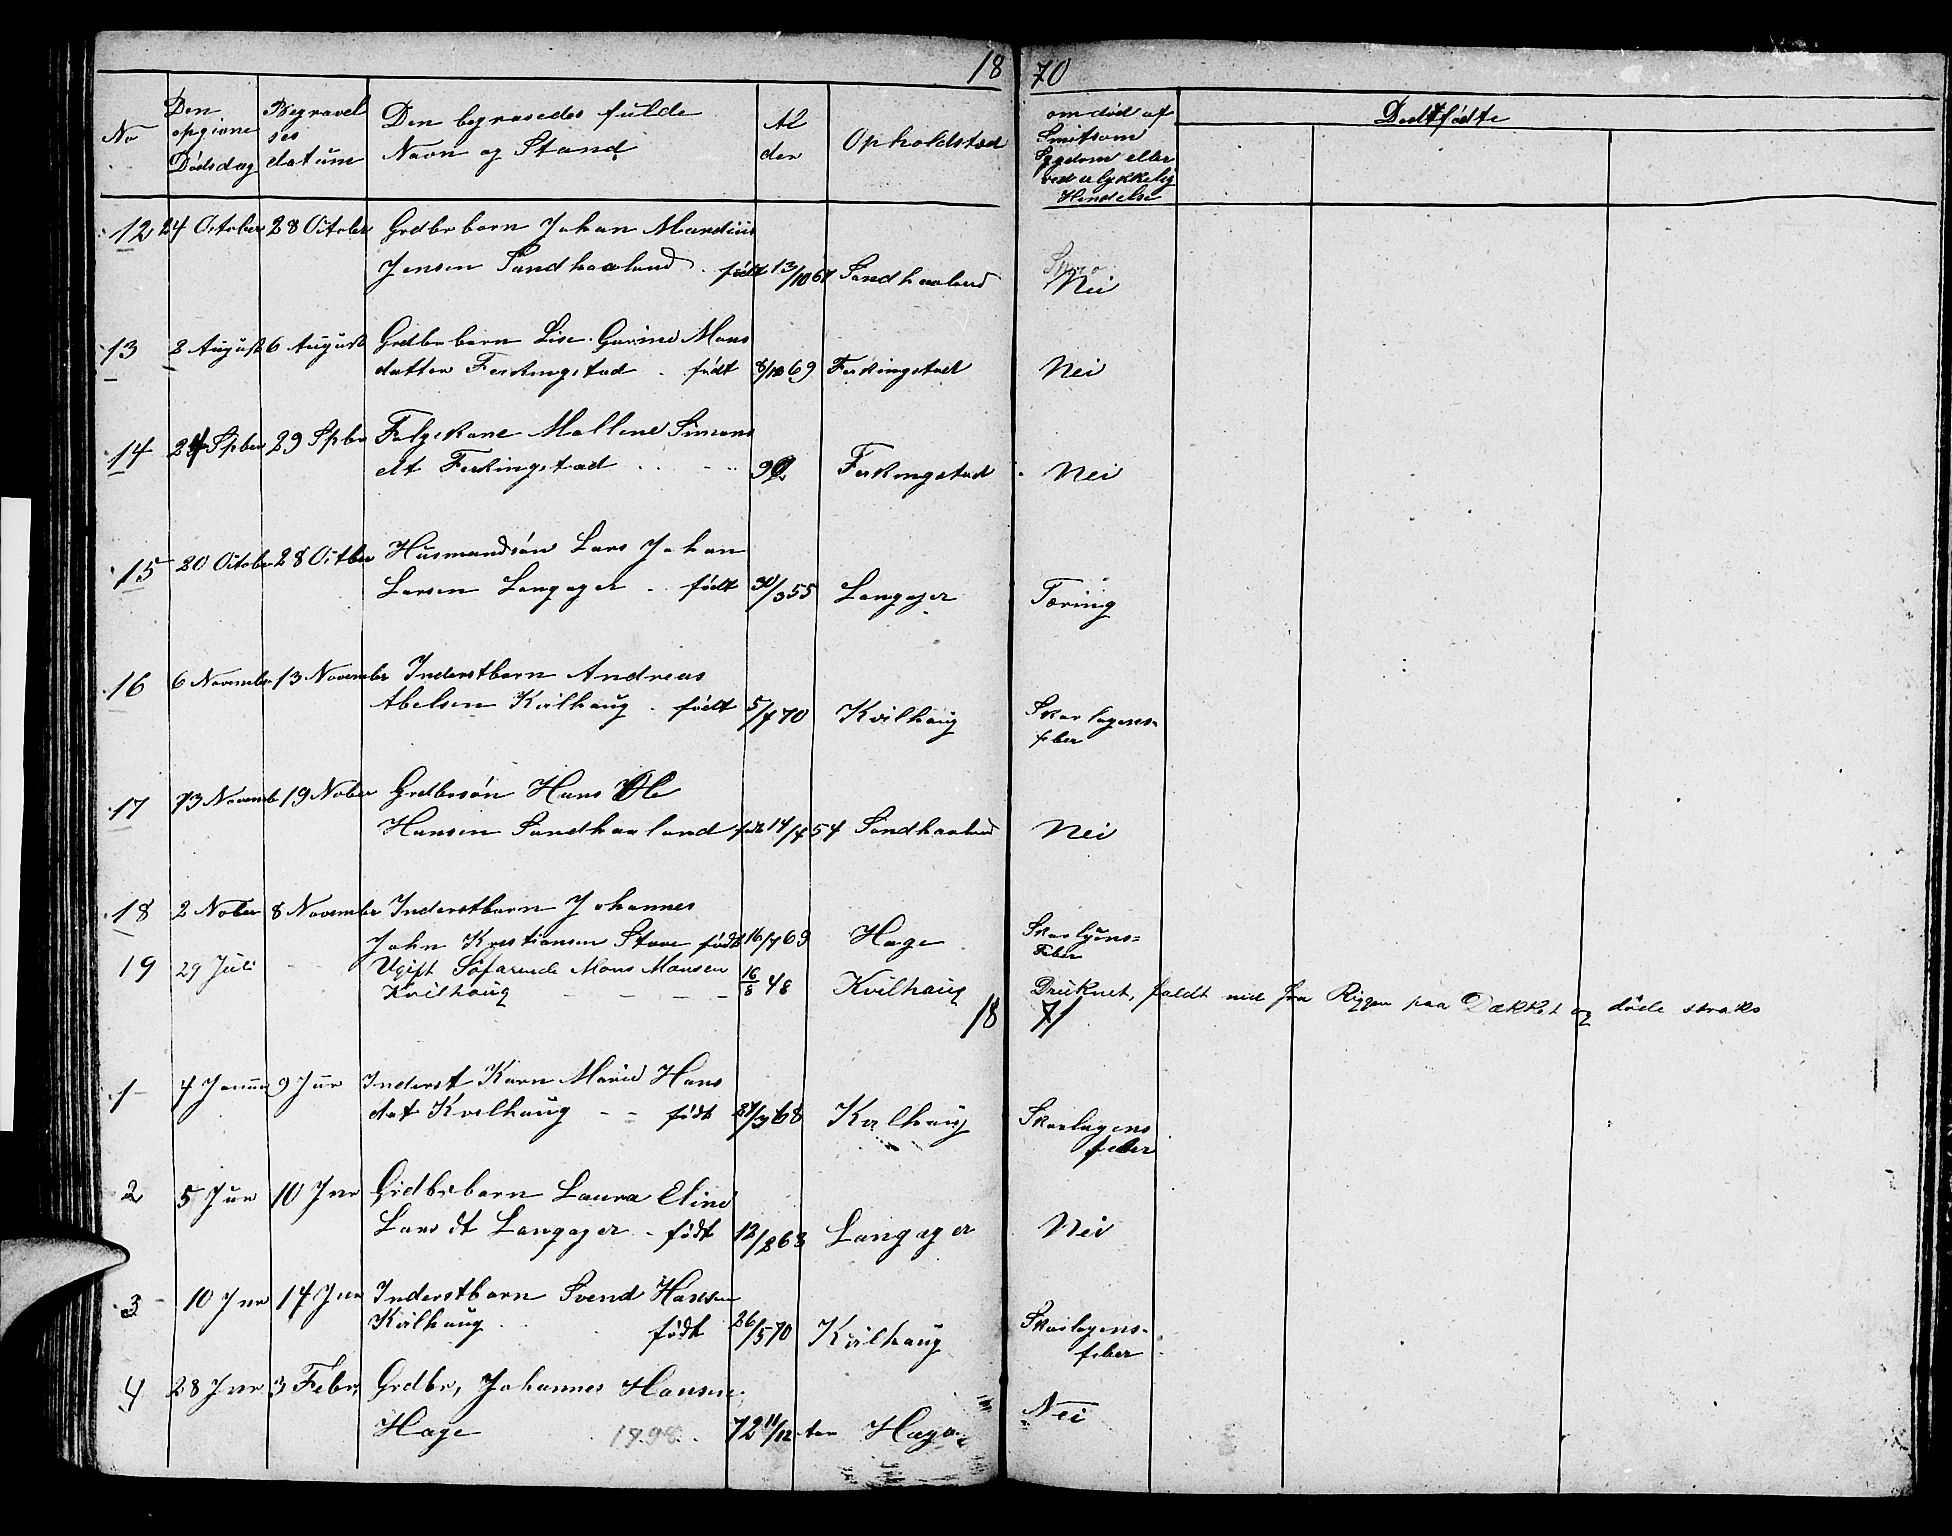 1870
No
Den opgivne Dødsdag
Begravelses datum
Den begravedes fulde Navn og Stand
Al der
Opholdsted
om död af Smitsom Sygdom eller ved ulykkelig Hendelse
Dødtfødte
12 24 October 28 October Grdbrbarn Johan Mandius
Jensen Sandhaaland . født 13/10 67 Sandhaaland Nei
13 2 August 6 August Grdbrbarn Lise Gurine Mons
datter Ferkingstad . født 8/10 69 Ferkingstad Nei
14 24 Spber 29 Spbr Folgekone Mallene Simons
dt Ferkingstad 92 Ferkingstad Nei
15 20 Octobr 28 Octber Husmandsön Lars Johan
Larsen Langager . født 30/3 55 Langager Tæring
16 6 Novembr 13 November Inderstbarn Andreas
Abelsen Kvilhaug . født 5/7 70 Kvilhaug Skarlagens=
feber
17 13 Novemb 19 Nober Grdbrsön Hans Ole
Hansen Sandhaaland født 14/4 54 Sandhaaland Nei
18 2 Nober 8 November Inderstbarn Johannes
John Kristiansen Stave født 16/7 69 Hage Skarlagens=
Feber
19 29 Juli Ugift Söfarende Mons Monsen 16/8 48 Kvilhaug Druknet, faldt ned fra Riggen paa Dækket og döde straks
Kvilhaug
1871
1 4 Januar 9 Jnr Inderst Karn Marie Hans
dat Kvilhaug født 27/3 68 Kvilhaug Skarlagens
feber
2 5 Jnr 10 Jnr Grdbrbarn Laura Eline
Lars dt Langager . født 12/8 63 Langager Nei
3 10 Jnr 14 Jnr Inderstbarn Svend Hansen
Kvilhaug født 26/5 70 Kvilhaug Skarlagens-
feber
4 28 Jnr 3 Febr, Grdbr, Johannes Hansen
Hage 1798 72 11/12 Hage Nei